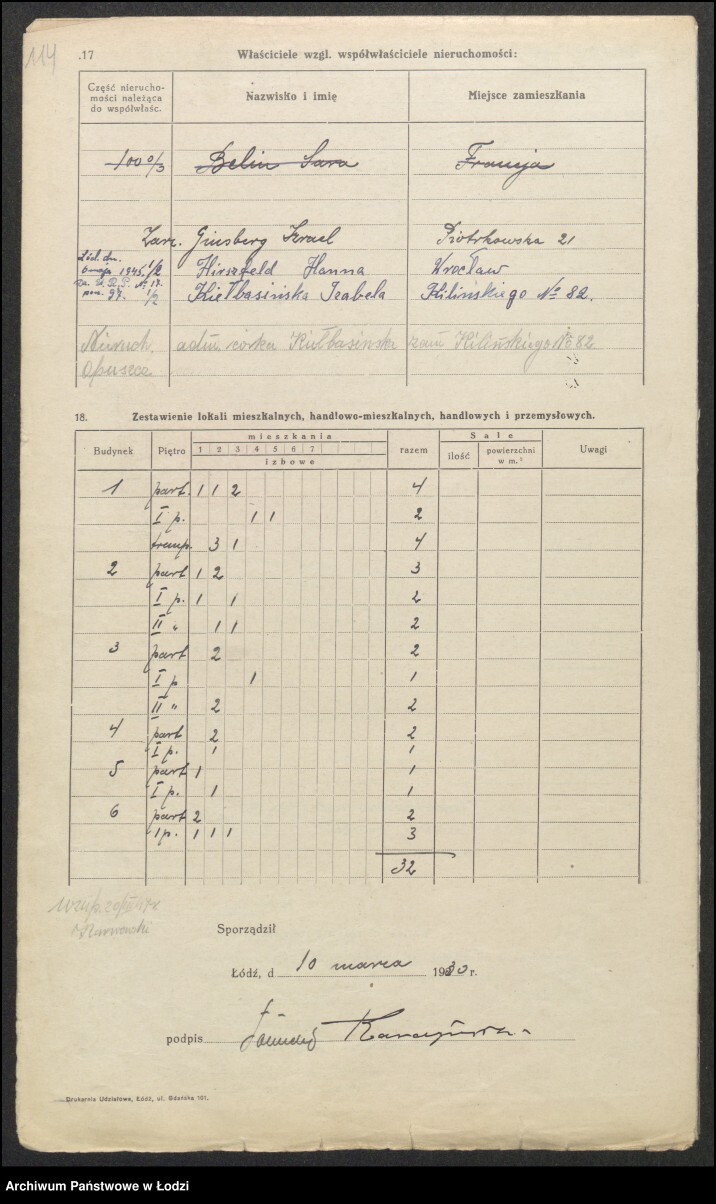 114
.17 Właściciele wzgl. współwłaściciele nieruchomości:
Część nierucho-
mości należąca
do współwłaśc.
Nazwisko i imię
Miejsce zamieszkania
100 % Belin Sara Francja
Zarz. Ginsberg Izrael Piotrkowska 21
1/2 Hirszfeld Hanna Wrocław
6 maja 1945. Nr 17.
poz. 97. 1/2 Kiełbasińska Izabela Kilińskiego № 82.
Nieruch. adm. córka Kiełbasińska zam Kilińskiego № 82
Opuszcz.
18. Zestawienie lokali mieszkalnych, handlowo-mieszkalnych, handlowych i przemysłowych.
Budynek Piętro mieszkania razem Sale Uwagi
1 2 3 4 5 6 7
izbowe
ilość powierzchni
w m.²
1 part. 1 1 2 4
I p. 1 1 2
3 1 4
2 part 1 2 3
I p. 1 1 2
II " 1 1 2
3 part 2 2
I p 1 1
II " 2 2
4 part 2 2
I p. 1 1
5 part 1 1
I p. 1 1
6 part 2 2
I p. 1 1 1 3
32
Sporządził
Łódź, d 10 marca 1930 r.
podpis
Drukarnia Udziałowa, Łódź, ul. Gdańska 101.
Archiwum Państwowe w Łodzi